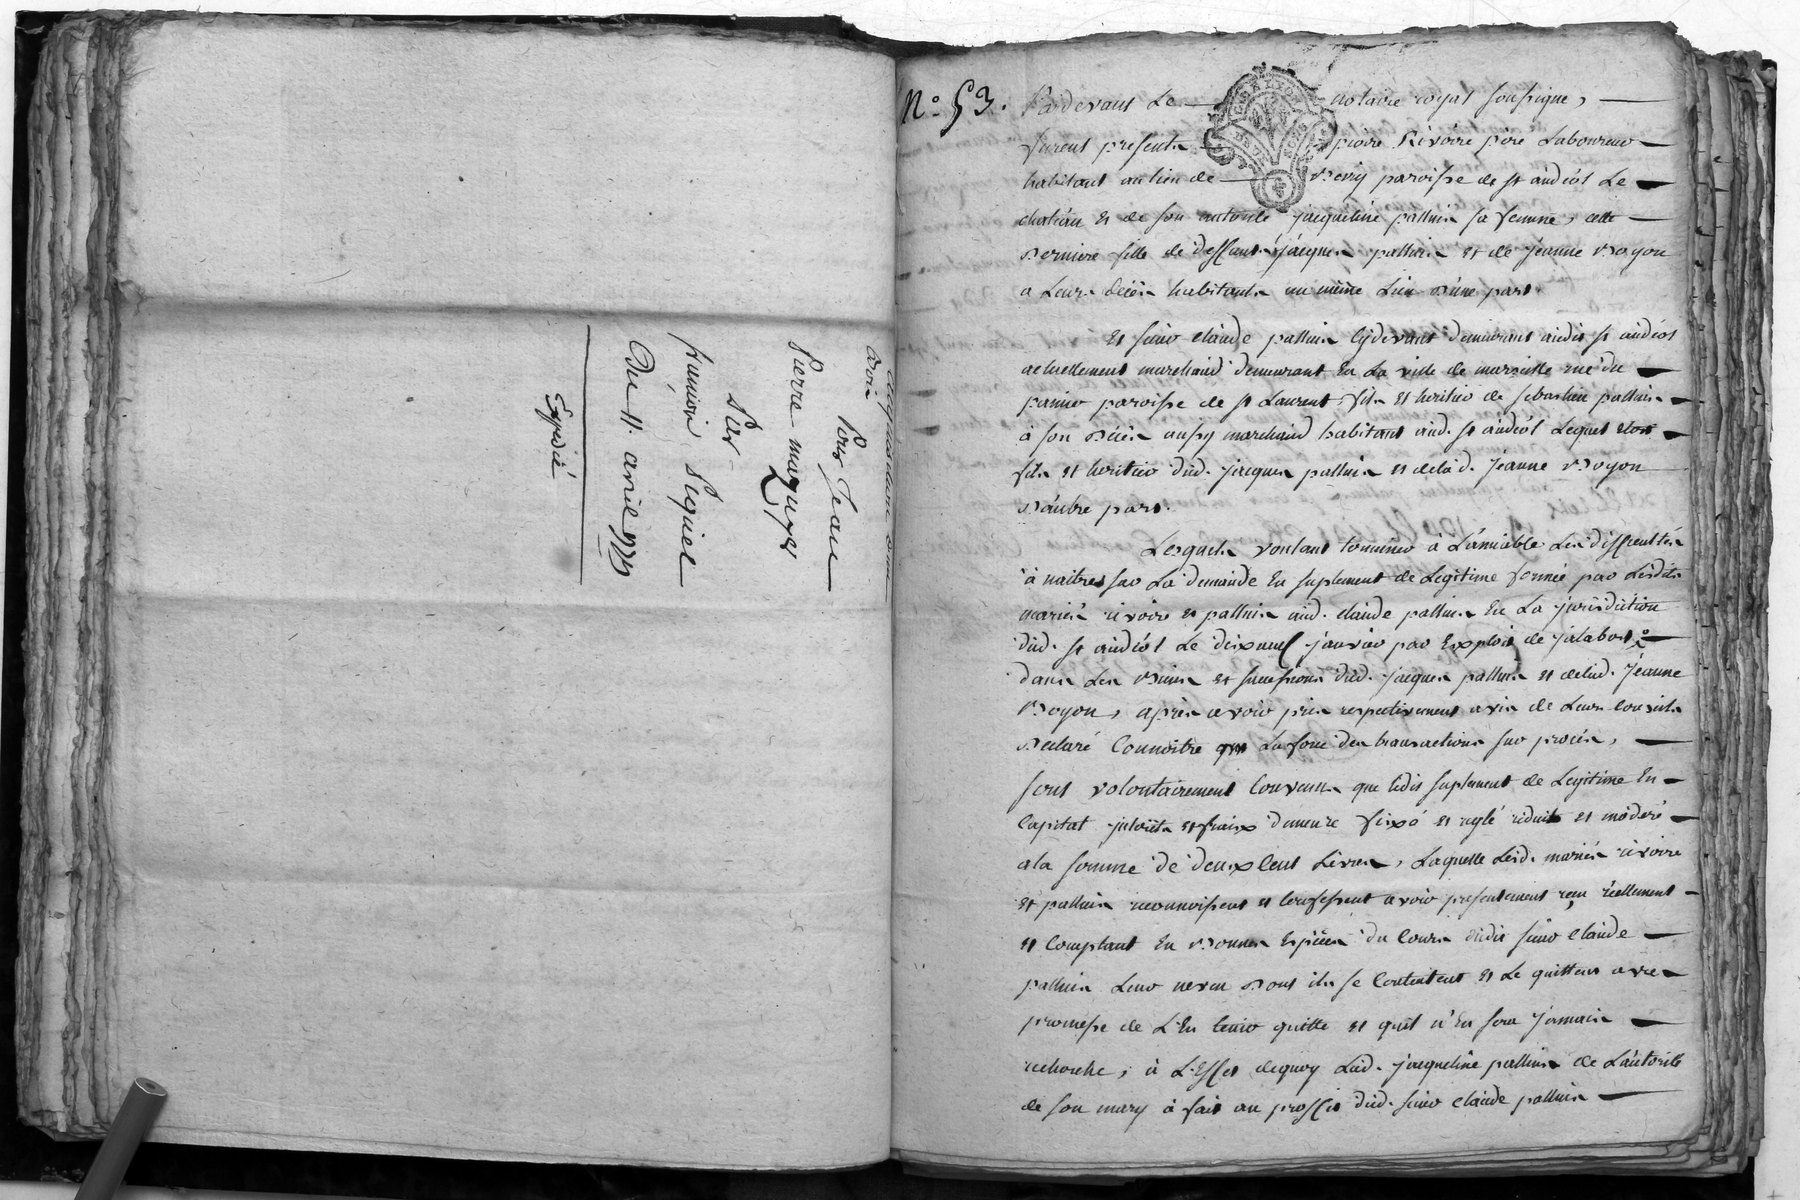 acquisitaire d'une
avoie
Pour Jean
Pierre mazuyer
Par
françois Seguel
Du 11. avril 1775
Expedié
N.o 53. Pardevant Le notaire royal soussigné,
furent presents pierre Rivoire pere Laboureur
habitant au lieu de paroisse de st andéol Le
chatéau et de son autorité jacqueline palluis sa femme, cette
derniere fille de deffunts jacques palluis et de jéanne Boyon
a Leurs décès habitants au même Lieu d'une part
Et sieur claude palluis cydevant demeurant audit st andéol
actuellement marchand demeurant En La ville de marseille rüe du
panier paroisse de st Laurent, fils et heritier de sebastien palluis
à son décès aussy marchand habitant aud. st andéol Lequel etoit
fils et heritier dud. jacques palluis et delad. jéanne Boyon
d'autre part.
Lesquels voulant terminer à L'amiable Les difficultés
à naitres sur La demande En suplement de Legitime formée par Lesdits
mariés rivoire et palluis aud. claude palluis En La jurisdiction
dud. st andéol Le dixneuf janvier par Exploit de jalabert
dans Les Biens et successions dud. jacques palluis et delad. jéanne
Boyon, après avoir pris respectivement avis de Leurs Conseils
déclaré Connoitre La force des transactions sur procès,
sont volontairement Convenus que ledit suplement de Legitime En
Capital interêts et fraix demeure fixé et reglé réduit et modéré
a la somme de deux Cent Livres, Laquelle Lesd. mariés rivoire
et palluis reconnoissent et Confessent avoir presentement reçu réellement
et Comptant En Bonnes Espéces du Cours dudit sieur claude
palluis Leur neveu dont ils se Contentent et Le quittent avec
promesse de L'En tenir quitte et quil n'En sera jamais
recherché, à L'Effet dequoy Lad. jacqueline palluis de L'autorité
de son mary à fait au proffit dud. sieur claude palluis